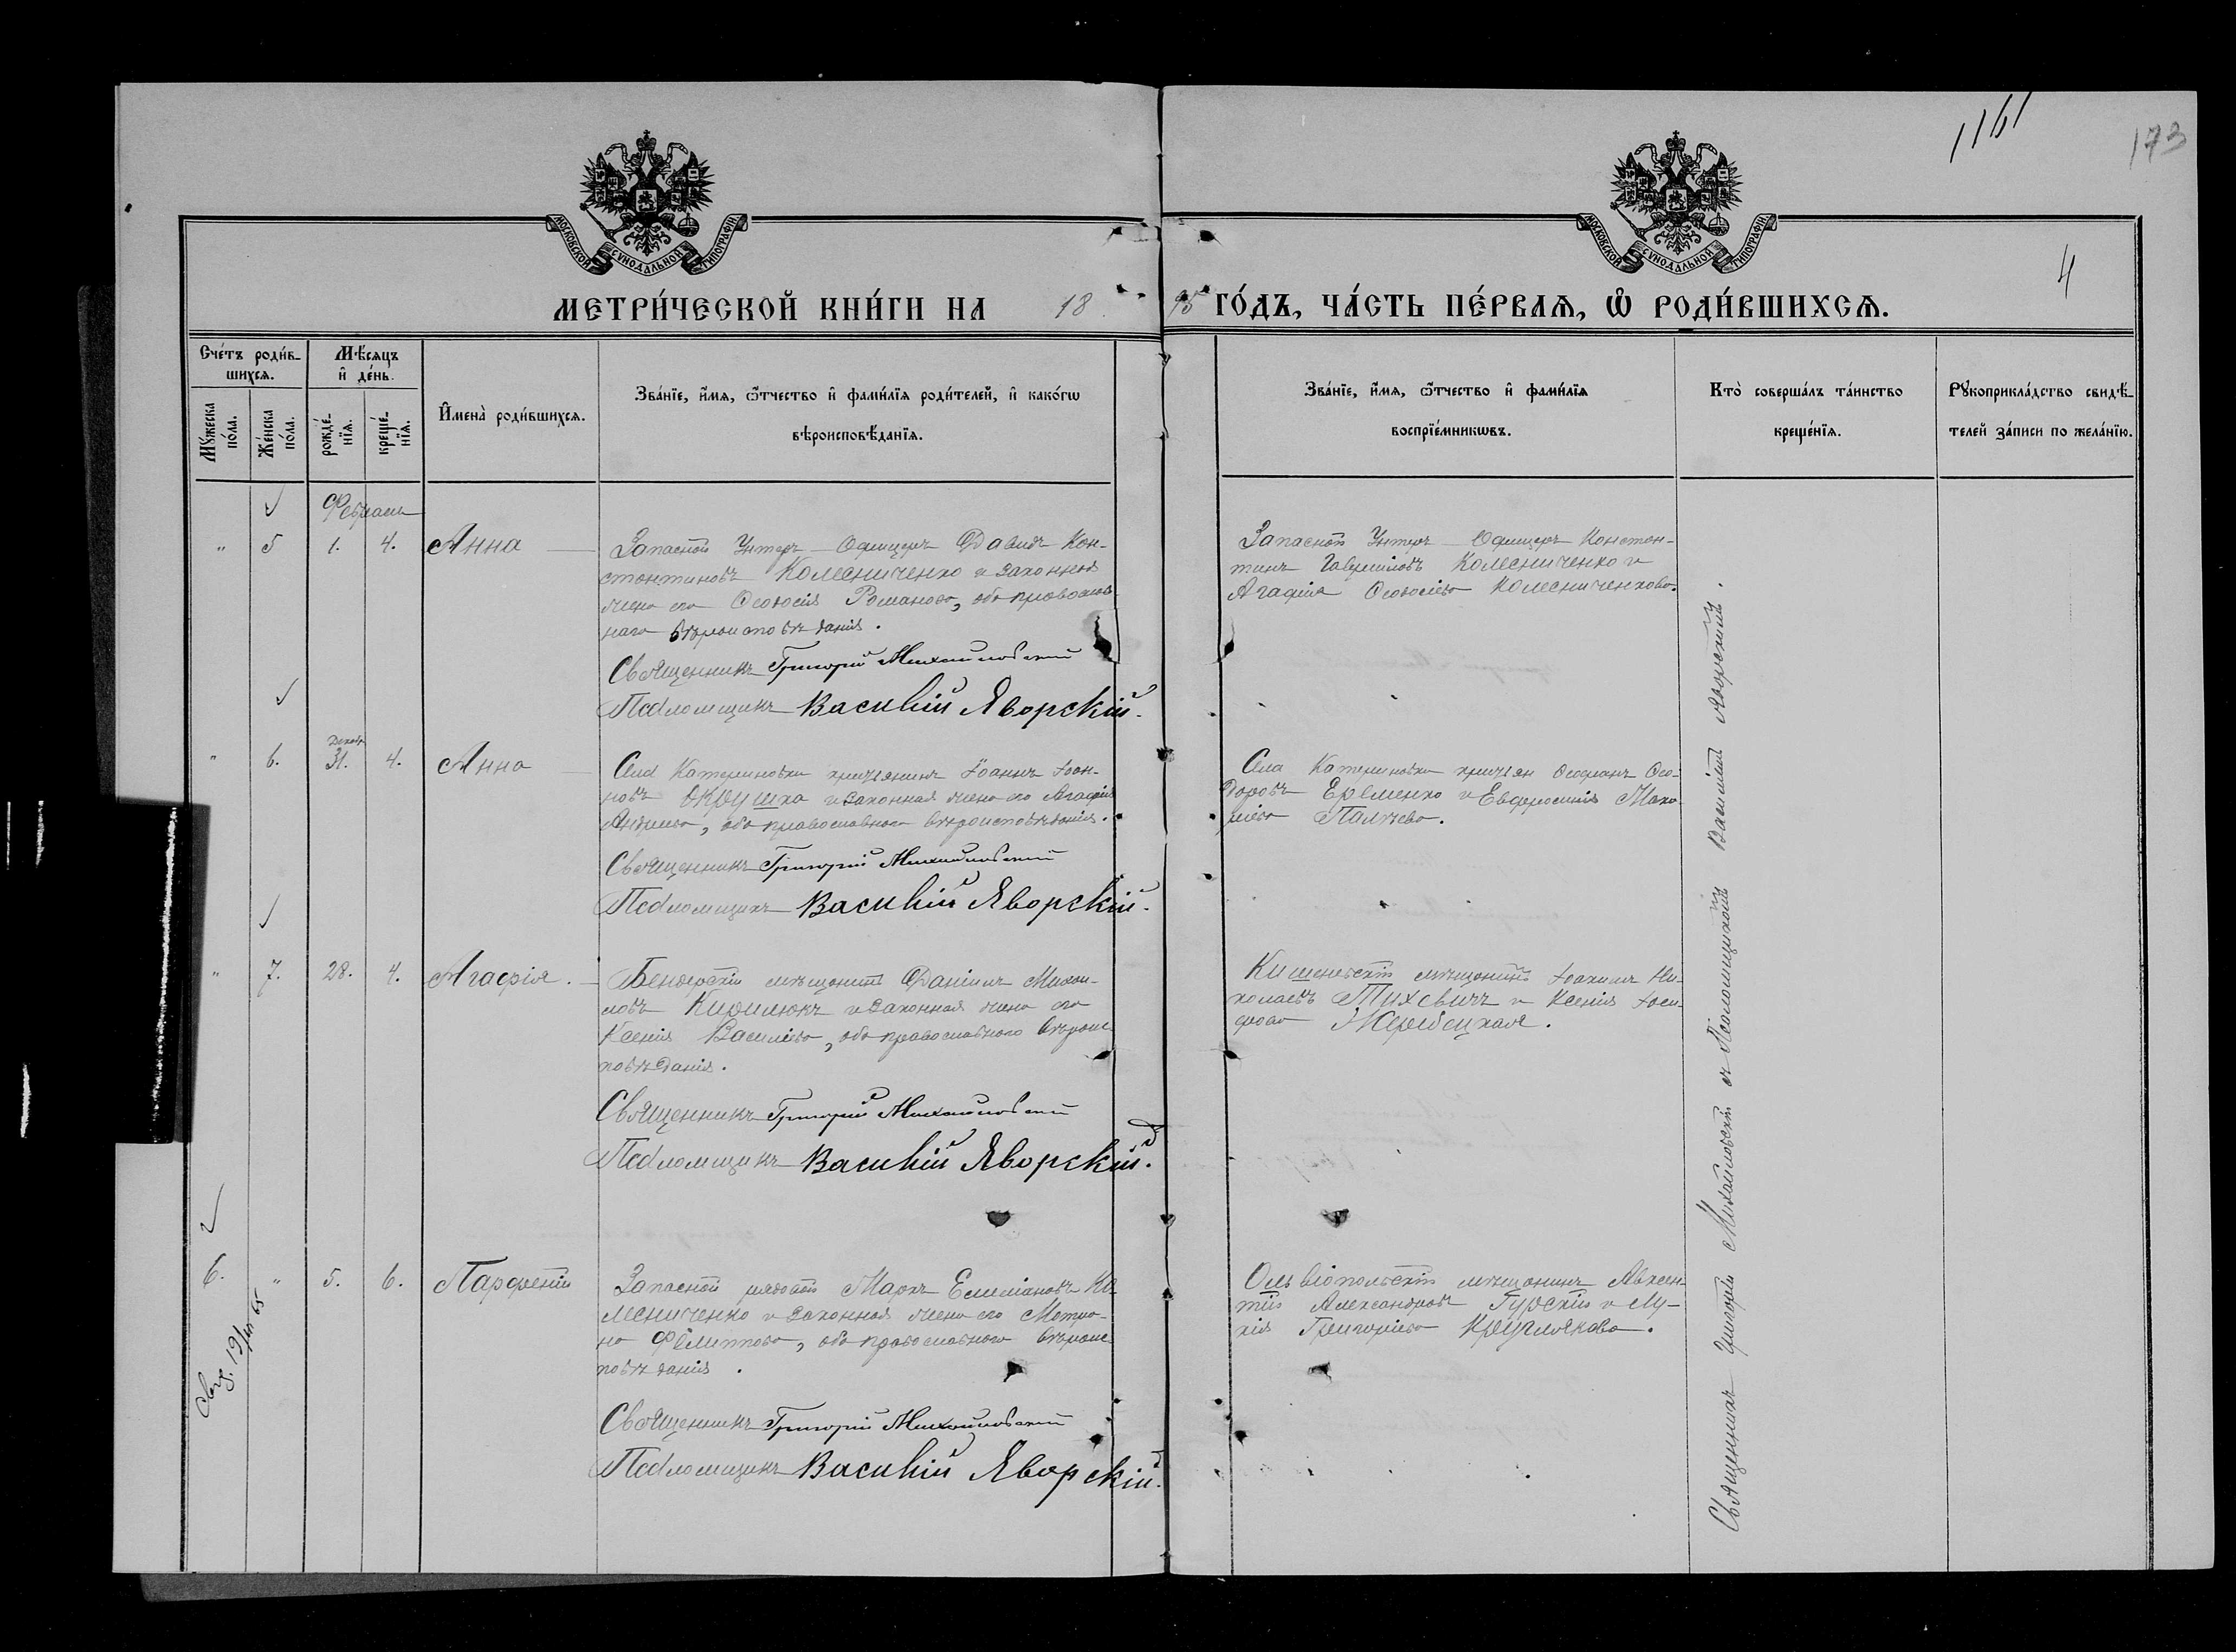 1161
173
4
МОСКОВСКОЙ СѴНОДАЛЬНОЙ ТИПОГРАФІИ
МОСКОВСКОЙ СѴНОДАЛЬНОЙ ТИПОГРАФІИ
МЕТРИ́ЧЕСКОЙ КНИ́ГИ НА 18 95 ГО́ДЪ, ЧА́СТЬ ПЕ́РВАѦ, Ѡ҆ РОДИ́ВШИХСѦ.
Сче́тъ роди́в-
шихсѧ.
Мѣ́сѧцъ
и҆ де́нь.
Мꙋ́жеска
по́ла.
Же́нска
по́ла.
рожде́-
нїѧ.
креще́-
нїѧ.
И҆мена̀ роди́вшихсѧ.
Зва́нїе, и҆́мѧ, ѻ҆́тчество и҆ фами́лїѧ роди́телей, и҆ како́гѡ
вѣроисповѣ́данїѧ.
Зва́нїе, и҆́мѧ, ѻ҆́тчество и҆ фами́лїѧ
воспрїе́мникѡвъ.
Кто̀ соверша́лъ та́инство
креще́нїѧ.
Рꙋкоприкла́дство свидѣ́-
телей за́писи по жела́нїю.
Февраль
" 5 1. 4. Анна
Запасной Унтеръ-Офицеръ Давидъ Кон-
стантиновъ Колесниченко и законная
жена его Ѳеодосія Романова, оба православ-
наго вѣроисповѣданія.
Священникъ Григорій Михайловскій
Псаломщикъ Василій Яворскій.
Запасной Унтеръ-Офицеръ Констан-
тинъ Гавриловъ Колесниченко и
Агафія Ѳеодосіева Колесниченкова.
Декабр.
" 6. 31. 4. Анна
Села Катериновки крестьянинъ Іоаннъ Іоан-
новъ Окрушко и законная жена его Агафія
Андреева, оба православнаго вѣроисповѣданія.
Священникъ Григорій Михайловскій
Псаломщикъ Василій Яворскій.
Села Катериновки крестьян Ѳеофанъ Ѳео-
доровъ Еременко и Евфросинія
Палѣева.
" 7. 28. 4. Агафія.
Бендерскій мѣщанинъ Даніилъ Михаи-
ловъ Кирилюкъ и законная жена его
Ксенія Василіева, оба православнаго вѣроис-
повѣданія.
Священникъ Григорій Михайловскій
Псаломщикъ Василій Яворскій.
Кишеневскій мѣщанинъ Іоакимъ Ни-
колаевъ Тихевичъ и Ксенія Іоси-
фова Жеребецкая.
6. " 5. 6. Парфеній
Запасной рядовой Маркъ Емеліановъ Ко-
лесниченко и законная жена его Матро-
на Филиппова, оба православнаго вѣроис-
повѣданія.
Священникъ Григорій Михайловскій
Псаломщикъ Василій Яворскій.
Ольвіопольскій мѣщанинъ Авксен-
тій Александровъ Гурскій и Лу-
кія Григоріева Круглякова.
Священникъ Григорій Михайловскій съ Псаломщикомъ Василіемъ Яворскимъ.